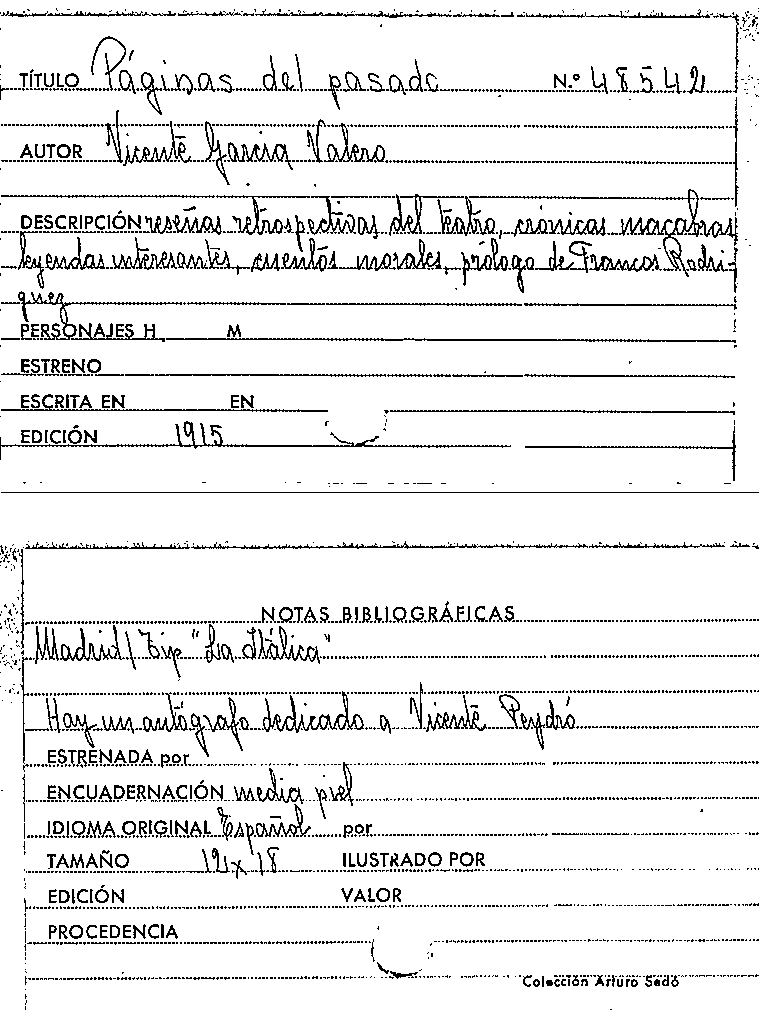 TÍTULO Páginas del pasado N.º 48542
AUTOR Vicente Garcia Valero
DESCRIPCIÓN reseñas retrospectivas del teatro, crónicas macabras
leyendas interesantes, cuentos morales, prólogo de Francos Rodri-
guez
PERSONAJES H M
ESTRENO
ESCRITA EN EN
EDICIÓN 1915
NOTAS BIBLIOGRÁFICAS
Madrid / Tip "La Itálica"
Hay un autógrafo dedicado a Vicente Peydró
ESTRENADA por
ENCUADERNACIÓN media piel
IDIOMA ORIGINAL Español por
TAMAÑO 12 x 18 ILUSTRADO POR
EDICIÓN VALOR
PROCEDENCIA
Colección Arturo Sedó